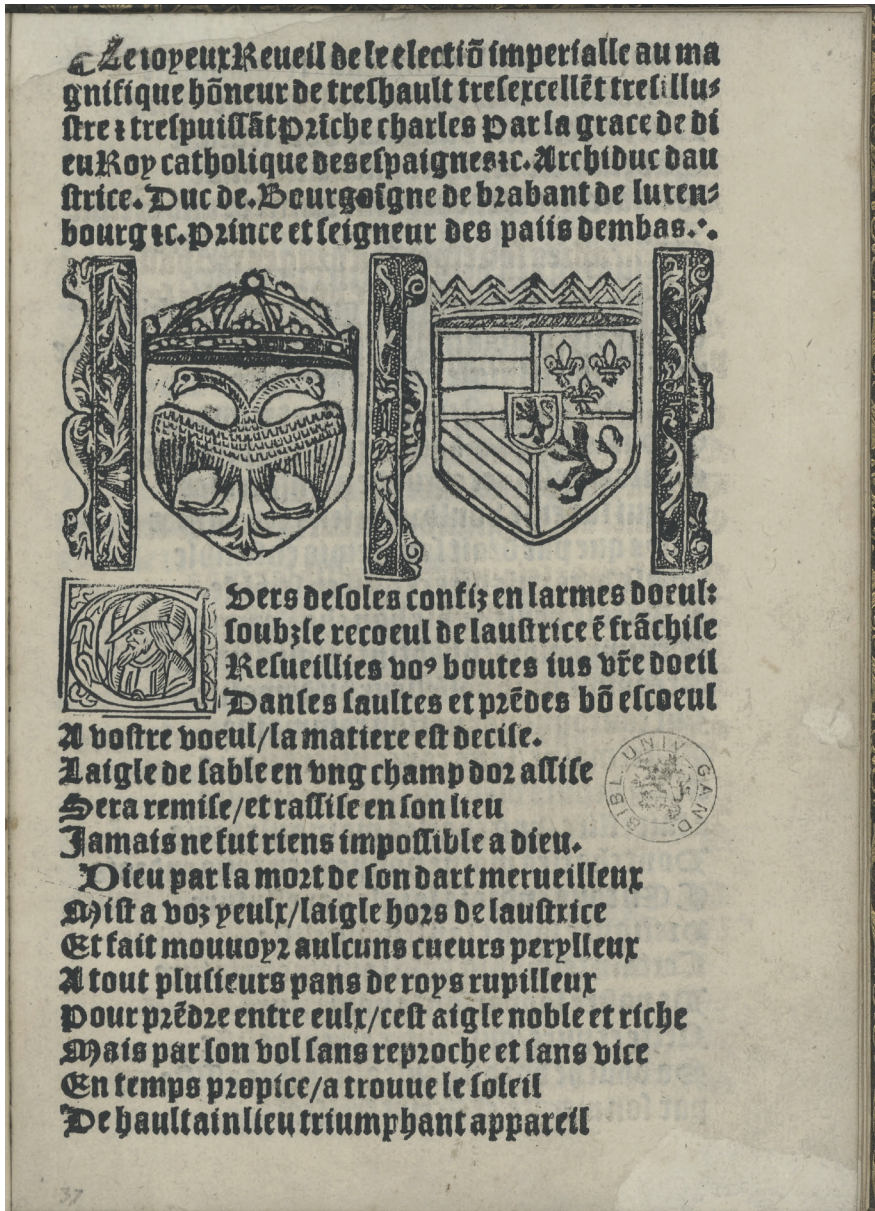 ⸿ Le ioyeux Reueil de le electiō imperialle au ma
gnifique hōneur de treshault tresexcellēt tresillu⸗
stre ⁊ trespuissāt prīche charles Par la grace de di
eu Roy catholique des espaignes ⁊c. Archiduc dau
strice. Duc de. Bourgoigne de brabant de luxen⸗
bourg ⁊c. Prince et seigneur des paiis dembas.
Vers desoles confiz en larmes doeul:
soubz le recoeul de laustrice ē frāchise
Resueillies voꝰ boutes ius vr̄e doeil
Danses saultes et prēdes bō escoeul
A vostre voeul/la matiere est decise.
Laigle de sable en vng champ dor assise
Sera remise/et rassise en son lieu
Jamais ne fut riens impossible a dieu.
Dieu par la mort de son dart merueilleux
Mist a voz yeulx/laigle hors de laustrice
Et fait mouuoyr aulcuns cueurs perylleux
A tout plusieurs pans de roys rupilleux
Pour prēdre entre eulx/cest aigle noble et riche
Mais par son vol sans reproche et sans vice
En temps propice/a trouue le soleil
De haultain lieu triumphant appareil
BIBL. UNIV. GAND.
37